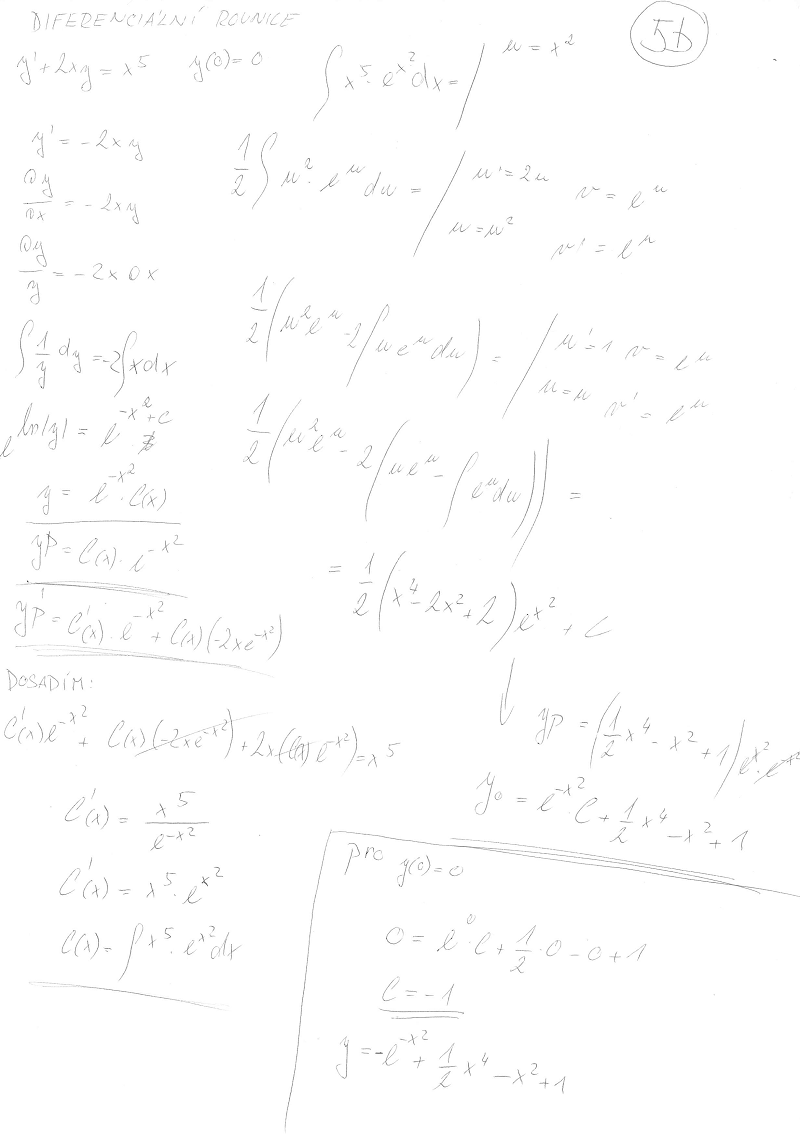 DIFERENCIÁLNÍ ROVNICE
5b
y' + 2xy = x^5 y(0) = 0
y' = -2xy
∂y/∂x = -2xy
∂y/y = -2x ∂x
∫ 1/y dy = -2∫x dx
e^ln|y| = e^(-x^2+c)
y = e^(-x^2) · C(x)
yp = C(x) · e^(-x^2)
yp' = C'(x) · e^(-x^2) + C(x)(-2xe^(-x^2))
DOSADÍM:
C'(x)e^(-x^2) + C(x)(-2xe^(-x^2)) + 2x(C(x)e^(-x^2)) = x^5
C'(x) = x^5/e^(-x^2)
C'(x) = x^5 · e^(x^2)
C(x) = ∫x^5 · e^(x^2) dx
∫x^5 · e^(x^2) dx = | u = x^2
1/2 ∫u^2 · e^u du = | u' = 2u v = e^u
u = u^2 v' = e^u
1/2 (u^2e^u - 2∫ue^u du) = | u' = 1 v = e^u
u = u v' = e^u
1/2 (u^2e^u - 2(ue^u - ∫e^u du)) =
= 1/2 (x^4 - 2x^2 + 2)e^(x^2) + C
↓ yp = (1/2 x^4 - x^2 + 1)e^(x^2) · e^(-x^2)
y0 = e^(-x^2) C + 1/2 x^4 - x^2 + 1
pro y(0) = 0
0 = e^0 · C + 1/2 · 0 - 0 + 1
C = -1
y = -e^(-x^2) + 1/2 x^4 - x^2 + 1